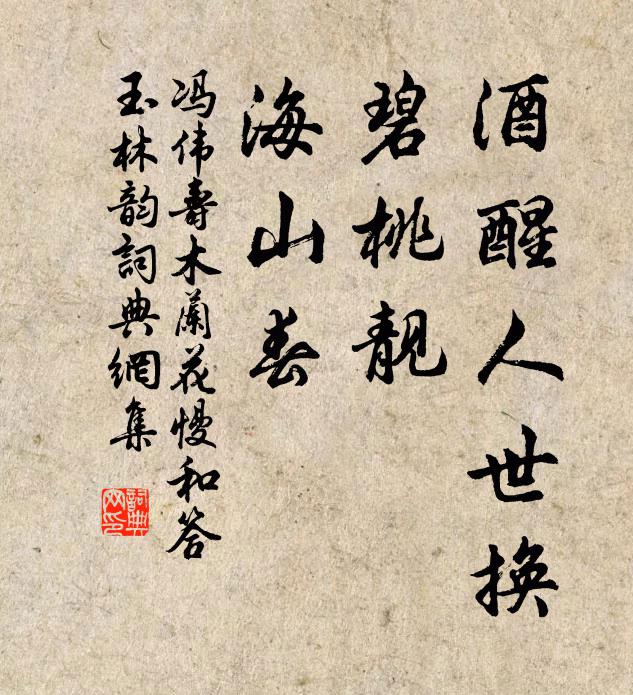 酒醒人世换
碧桃靓
海山春
冯伟寿木蘭花慢和答
玉林韵詞典網集
詞典
网印